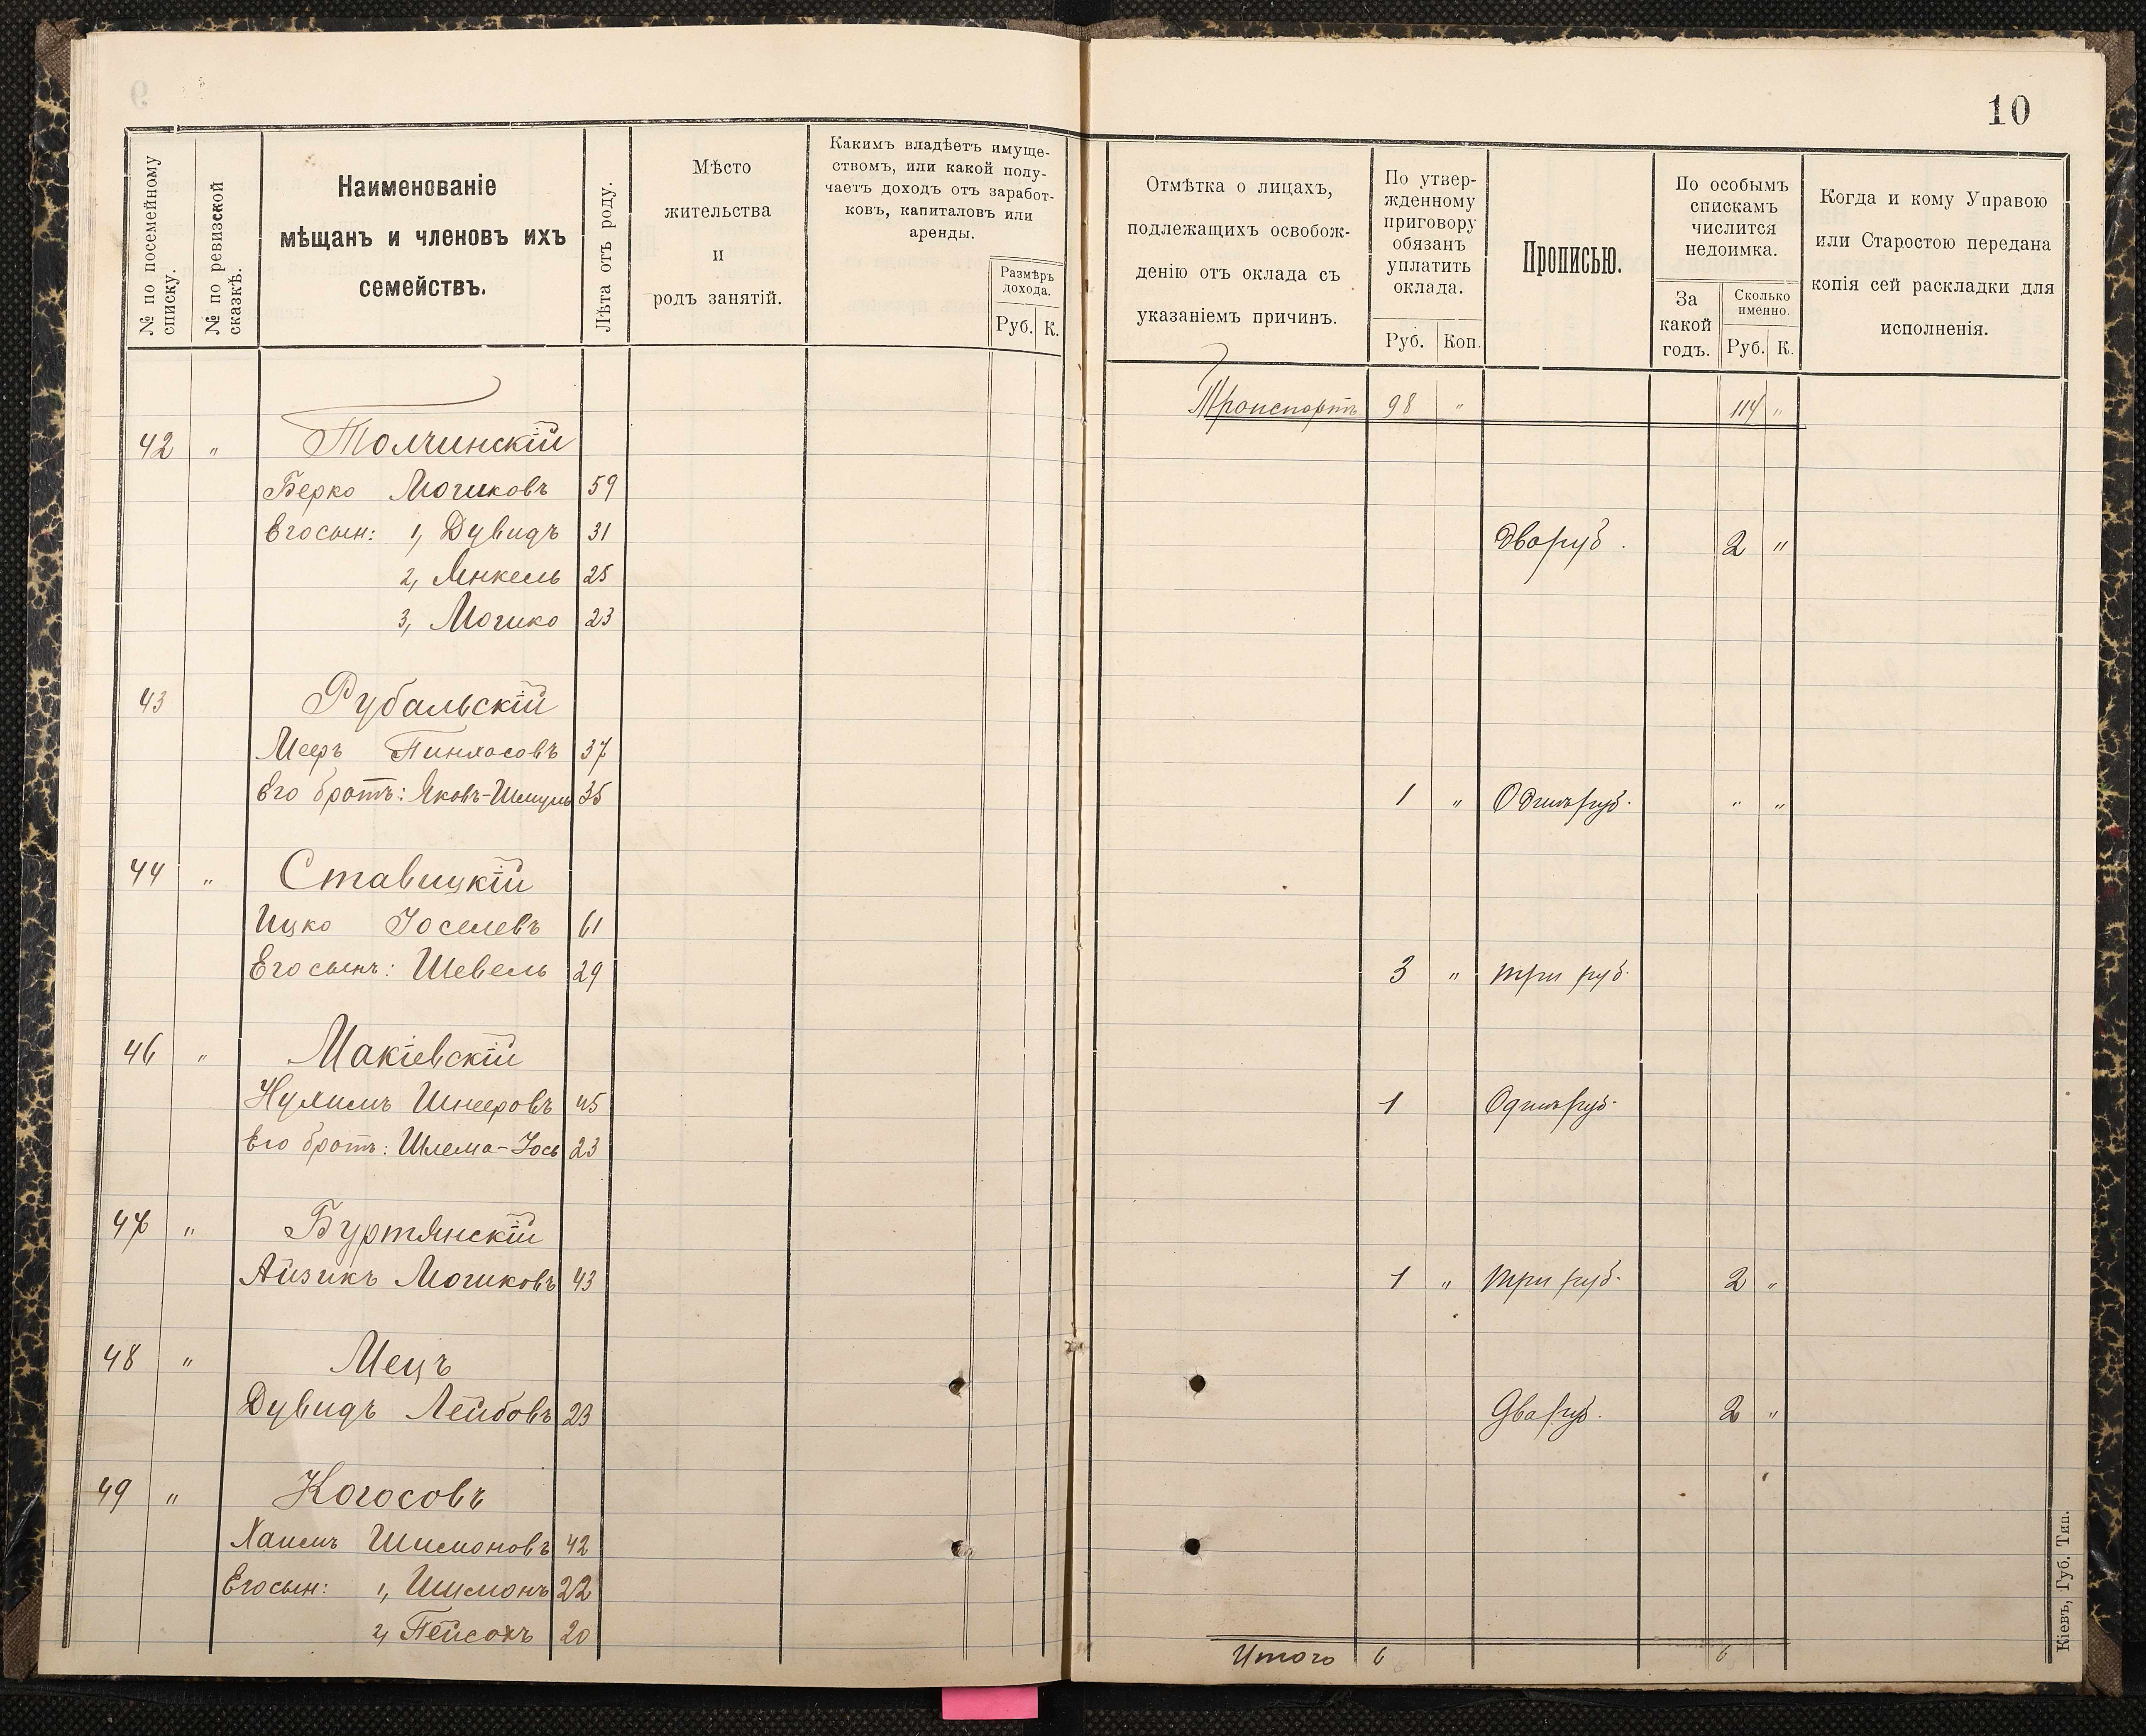 10
№ по посемейному списку.
№ по ревизской сказкѣ.
Наименованіе
мѣщанъ и членовъ ихъ
семействъ.
Лѣта отъ роду.
Мѣсто
жительства
и
родъ занятій.
Какимъ владѣетъ имуще-
ствомъ, или какой полу-
чаетъ доходъ отъ заработ-
ковъ, капиталовъ или
аренды.
Размѣръ
дохода.
Руб. К.
Отмѣтка о лицахъ,
подлежащихъ освобож-
денію отъ оклада съ
указаніемъ причинъ.
По утвер-
жденному
приговору
обязанъ
уплатить
оклада.
Руб. Коп.
Прописью.
По особымъ
спискамъ
числится
недоимка.
За
какой
годъ.
Сколько
именно.
Руб. К.
Когда и кому Управою
или Старостою передана
копія сей раскладки для
исполненія.
Транспортъ 98 " 114 "
42 " Толчинскій
Берко Мошковъ 59
Его сын: 1, Дувидъ 31 два руб. 2 "
2, Янкель 25
3, Мошко 23
43 Рубальскій
Меръ Пинхасовъ 37
Его братъ: Яковъ-Шмуль 35 1 " Одинъ руб. " "
44 " Ставицкій
Ицко Іоселевъ 61
Его сынъ: Шевель 29 3 " три руб.
46 " Макіевскій
Нухимъ Шнееровъ 45 1 Одинъ руб.
Его братъ: Шлема-Іось 23
47 " Буртянскій
Айзикъ Мошковъ 43 1 " три руб. 2 "
48 " Мецъ
Дувидъ Лейбовъ 23 Два руб. 2 "
49 " Когосовъ
Хаимъ Шимоновъ 42
Его сын: 1, Шимонъ 22
2, Пейсахъ 20
Итого 6 6
Кіевъ, Губ. Тип.